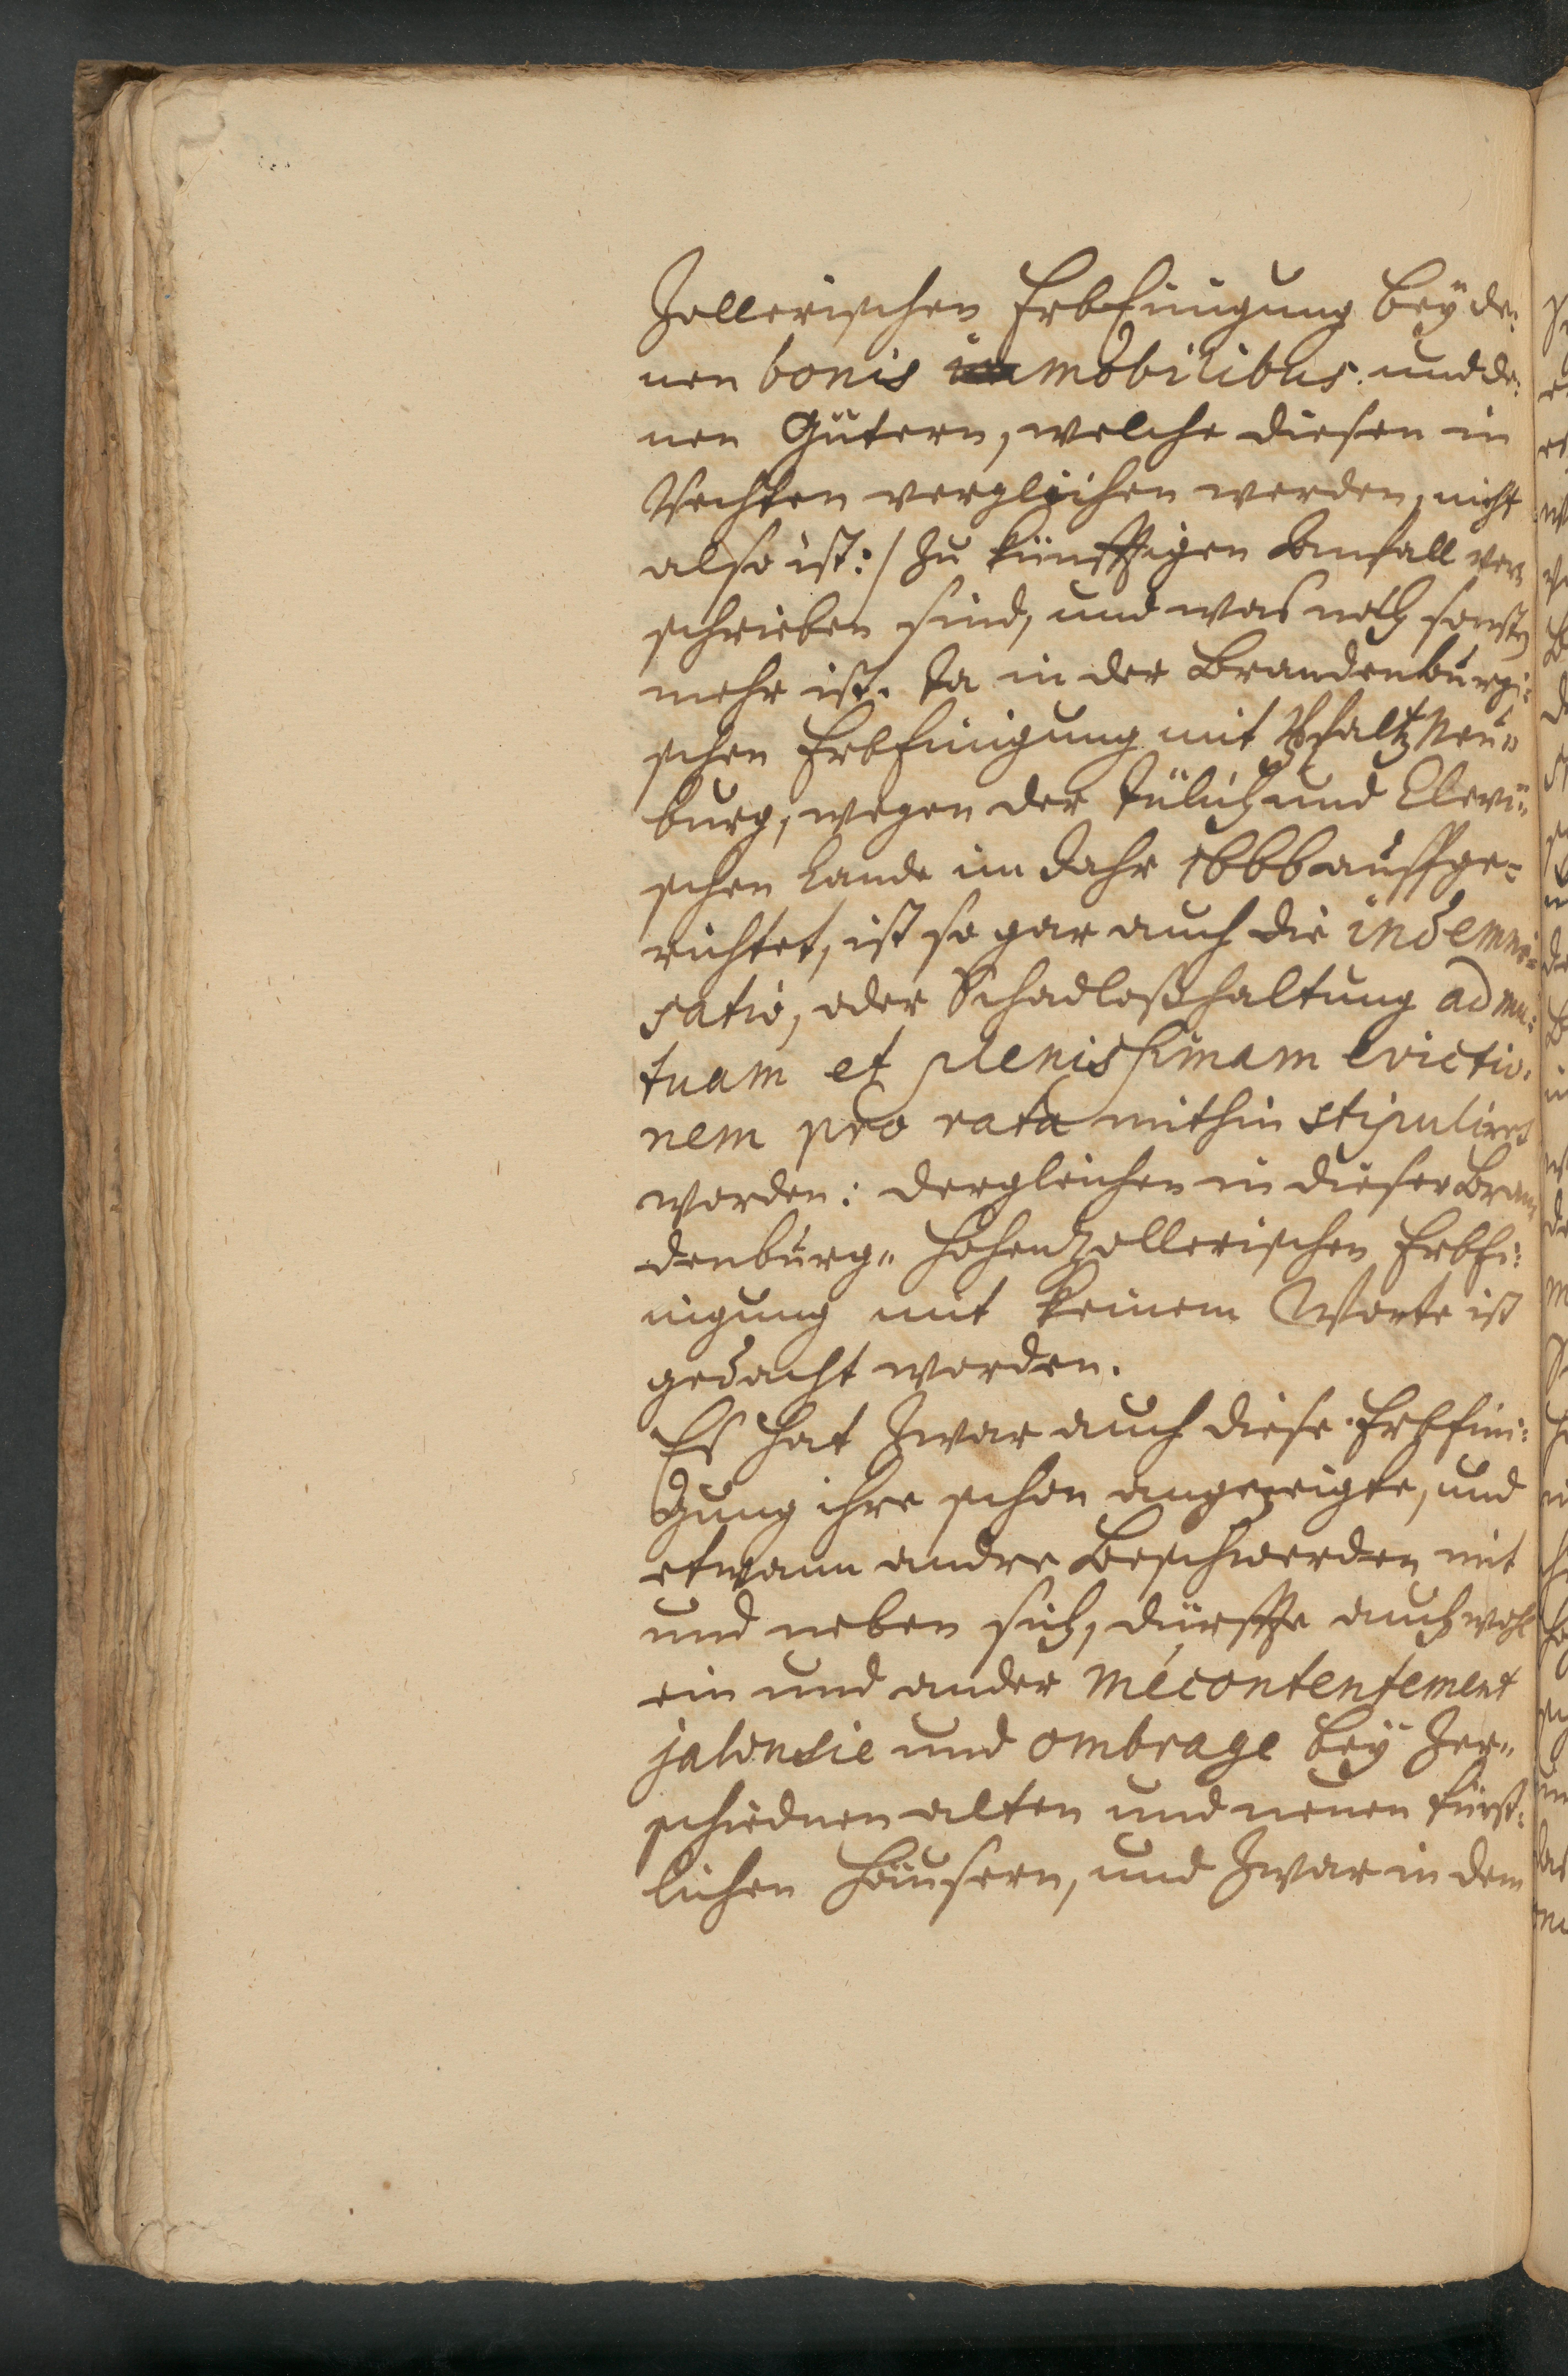 Zollerischen ErbEinigung bey de¬
nen bonis mobilibus und de¬
nen Gütern, welche diesen in
Rechten verglichen werden, nicht
also ist:/ zu künfftigen Anfall ver¬
schrieben sind, und was noch sonsten
mehr ist. Ja in der Brandenburgi¬
schen ErbEinigung mit Pfaltz Neu¬
burg, wegen der Jülich und Clevi¬
schen Lande im Jahr 1666 auffge¬
richtet, ist so gar auch die indemni¬
satio, oder Schadloßhaltung ad mu¬
tuam et plenissimam evictio¬
nem pro rata mithin stipuliret
worden: dergleichen in dieser Bran
denburg- Hohenzollerischen ErbEi¬
nigung mit keinem Worte ist
gedacht worden.
Es hat zwar auch diese ErbEini¬
gung ihre schon angezeigte, und
etwann andre Beschwerden mit
und neben sich, dürffte auch wohl
ein und ander mécontentement
jalousie und ombrage bey Zer¬
schiednen alten und neuen Fürst¬
lichen Häusern, und zwar in dem